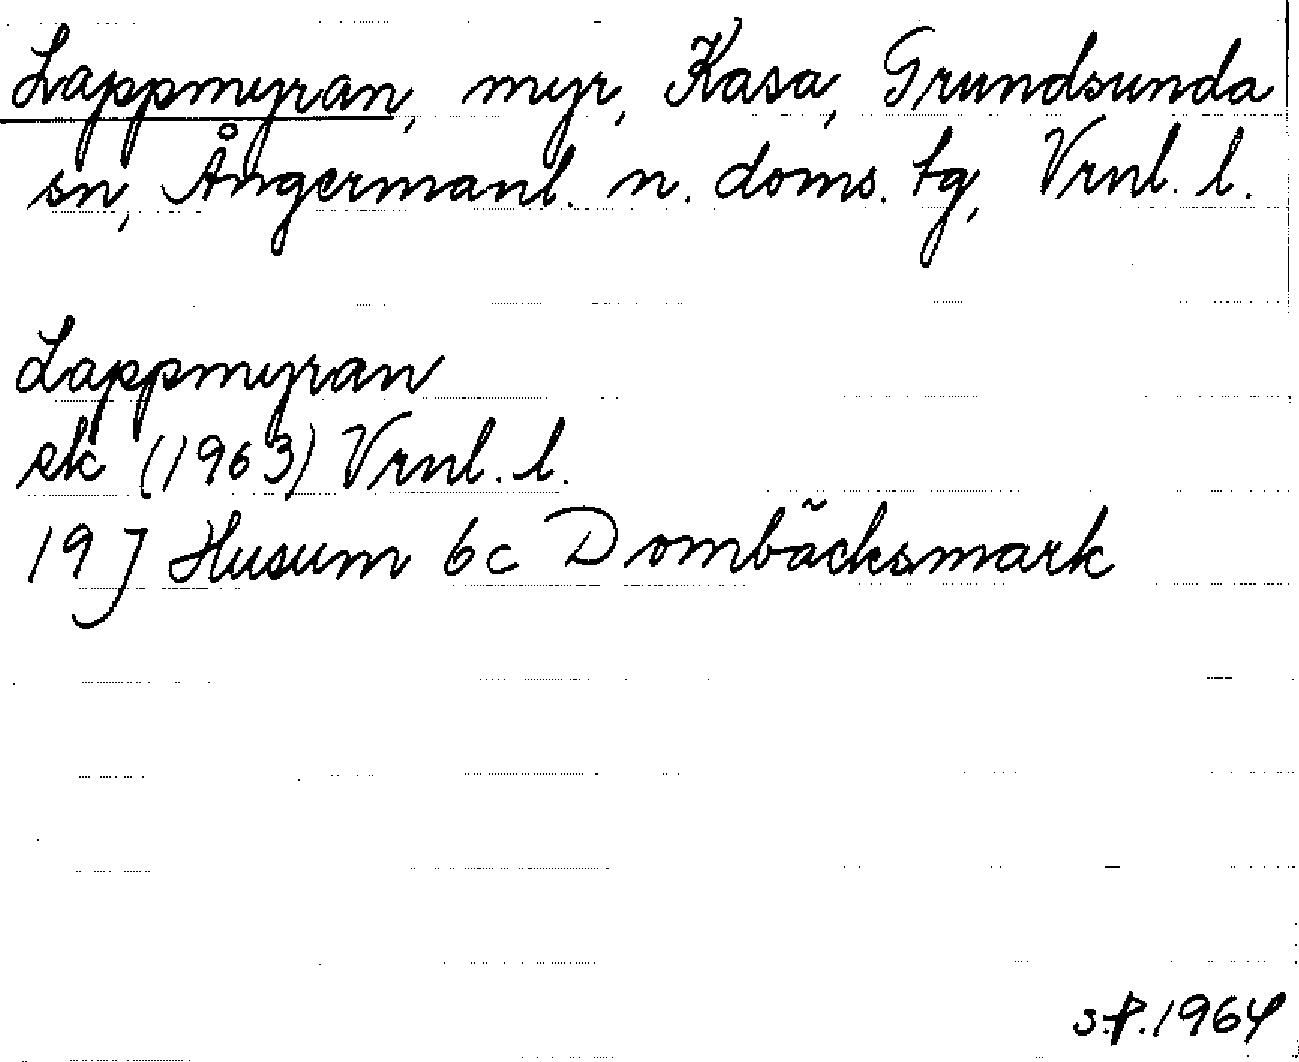 Lappmyran, myr, Kasa, Grundsunda
sn, Ångermanl. n. doms. tg, Vrnl. l.
Lappmyran
ek (1963) Vrnl. l.
19 J Husum 6c Dombäcksmark
S.P. 1964